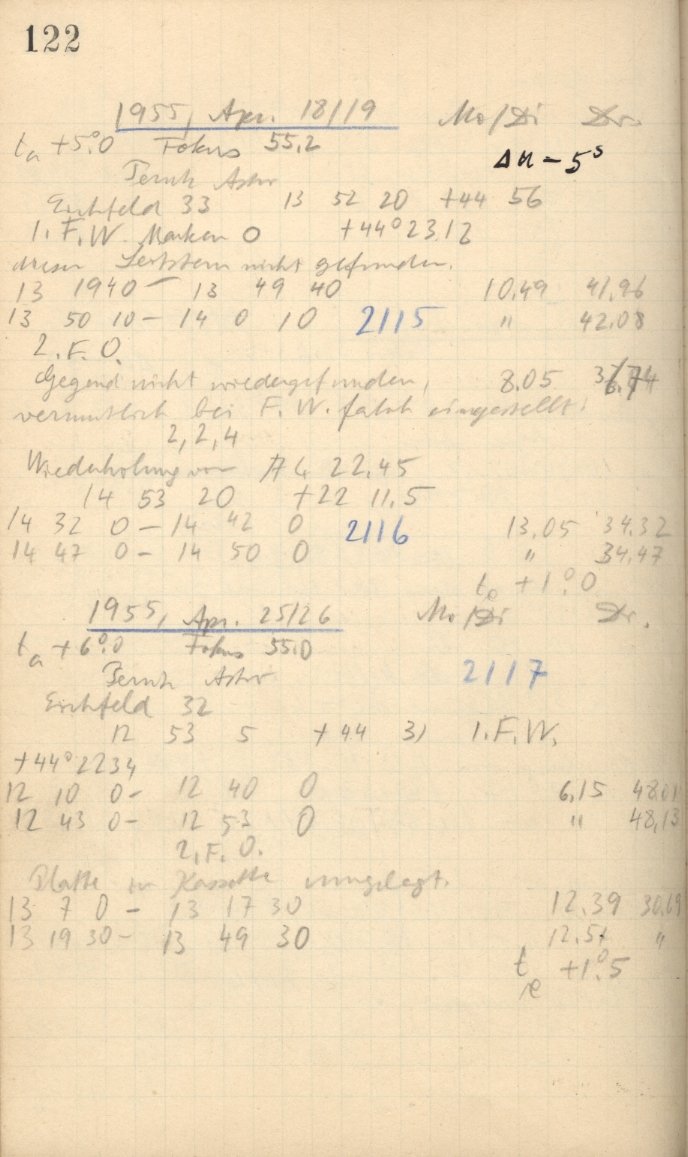 122
1955, Apr. 18/19 Mo/Di Dr.
ta +5°.0 Fokus 55.2
Δu - 5s
Astr
Eichfeld 33 13 52 20 +44 56
1. F.W. Marken 0 +44°2312
nicht gefunden.
13 19 40 - 13 49 40 10,49 41,96
13 50 10 - 14 0 10 2115 " 42,08
2. F. O.
Gegend nicht wiedergefunden, 8,05
vermutlich bei F. W. falsch eingestellt!
2, 2, 4
Wiederholung von A4 22.45
14 53 20 +22 11.5
14 32 0 - 14 42 0 2116 13,05 34,32
14 47 0 - 14 50 0 " 34,47
te +1°.0
1955, Apr. 25/26 Mo/Di Dr.
ta +6°.0 Fokus 55.0
Astr 2117
Eichfeld 32
12 53 5 +44 31 1. F.W.
+44°2234
12 10 0 - 12 40 0 6,15 48,01
12 43 0 - 12 53 0 " 48,13
2. F. O.
Platte in Kassette umgelegt.
13 7 0 - 13 17 30 12.39 30,69
13 19 30 - 13 49 30 "
te +1°.5